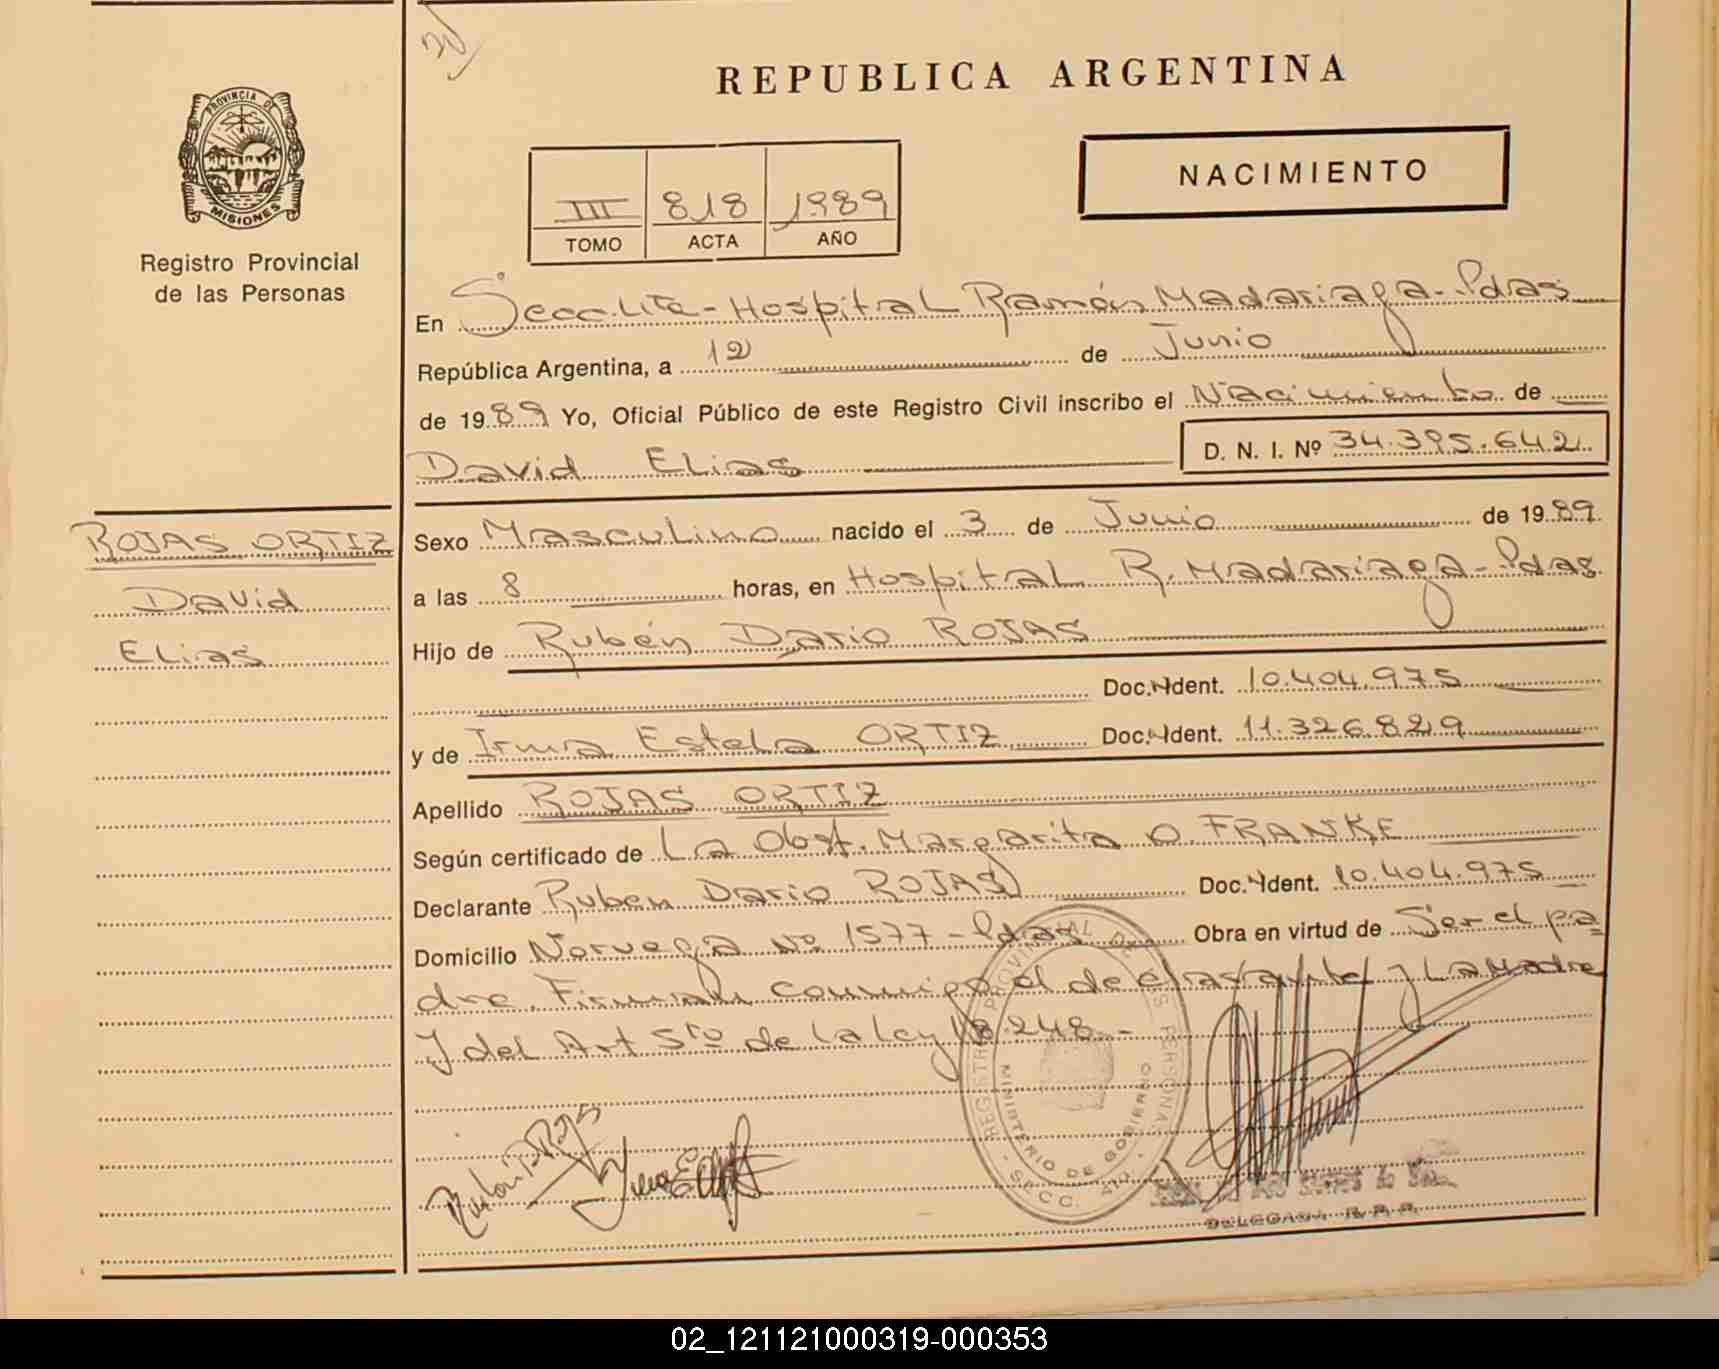 REPUBLICA ARGENTINA
PROVINCIA DE
MISIONES
Registro Provincial
de las Personas
NACIMIENTO
III 818 1989
TOMO ACTA AÑO
En Secc. Lite - Hospital Ramón Madariaga - Pdas
República Argentina, a 12 de Junio
de 1989 Yo, Oficial Público de este Registro Civil inscribo el Nacimiento de
David Elias D. N. I. Nº 34.395.642
ROJAS ORTIZ
David
Elias
Sexo Masculino nacido el 3 de Junio de 1989
a las 8 horas, en Hospital R. Madariaga - Pdas
Hijo de Rubén Dario ROJAS
Doc. Ident. 10.404.975
y de Irma Estela ORTIZ Doc. Ident. 11.326.829
Apellido ROJAS ORTIZ
Según certificado de La Obst. Margarita O. FRANKE
Declarante Ruben Dario ROJAS Doc. Ident. 10.404.975
Domicilio Norvega Nº 1577 - Pdas Obra en virtud de Ser el pa
dre. Firman conmigo el declarante y La Madre
y del Art 5to de La Ley 18.248 -
REGISTRO PROVINCIAL DE LAS PERSONAS
MINISTERIO DE GOBIERNO
SECC.
DELEGADA R.P.P.
02_121121000319-000353